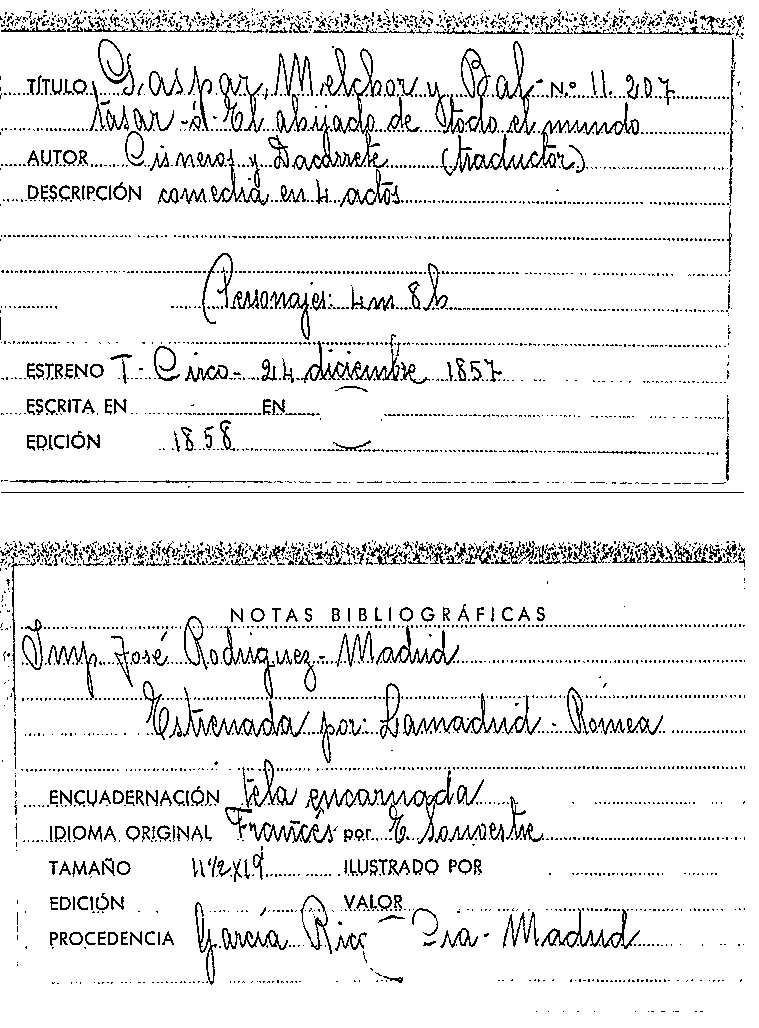 TÍTULO Gaspar, Melchor y Bal- N.º 11.207
tasar -ó- El ahijado de todo el mundo
AUTOR Cisneros y Dacarrete (traductor)
DESCRIPCIÓN comedia en 4 actos
Personajes: 4m 8h
ESTRENO T- Circo- 24 diciembre 1857
ESCRITA EN EN
EDICIÓN 1858
NOTAS BIBLIOGRÁFICAS
Imp. José Rodríguez- Madrid
Estrenada por: Lamadrid - Romea
ENCUADERNACIÓN tela encarnada
IDIOMA ORIGINAL Francés por E Souvestre
TAMAÑO 11½x19 ILUSTRADO POR
EDICIÓN VALOR
PROCEDENCIA García Rico Cia- Madrid